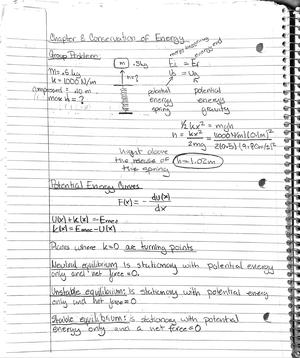 Chapter 8 Conservation of Energy
Group Problem:
energy beginning energy end
m .5kg
Ei = Ef
m = .5 kg
k = 1000 N/m
h=?
Us = Ug
compressed = .10 m
max h = ?
potential energy spring
potential energy gravity
½ kx² = mgh
h = kx²/2mg = (1000 N/m)(.1m)²/2(0.5)(9.80m/s)²
height above
the release of h=1.02m
the spring
Potential Energy Curves
F(x) = - dU(x)/dx
U(x) + k(x) = Emec
k(x) = Emec - U(x)
Places where k=0 are turning points
Neutral equilibrium is stationary with potential energy
only and net force = 0.
Unstable equilibrium: is stationary with potential energy
only and net force = 0
Stable equilibrium: is stationary with potential
energy only and a net force = 0